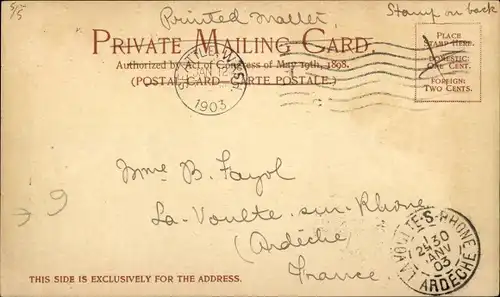 Printed matter
Stamp on back
PRIVATE MAILING CARD.
Authorized by Act of Congress of May 19th, 1898.
(POSTAL CARD — CARTE POSTALE.)
PLACE
STAMP HERE.
DOMESTIC:
ONE CENT.
FOREIGN:
TWO CENTS.
SEATTLE, WASH.
JAN 12
1903
Mme B. Fayol
La-Voulte-sur-Rhône
(Ardèche)
France.
9
LA VOULTE-S-RHONE
30
JANV
03
ARDÈCHE
THIS SIDE IS EXCLUSIVELY FOR THE ADDRESS.